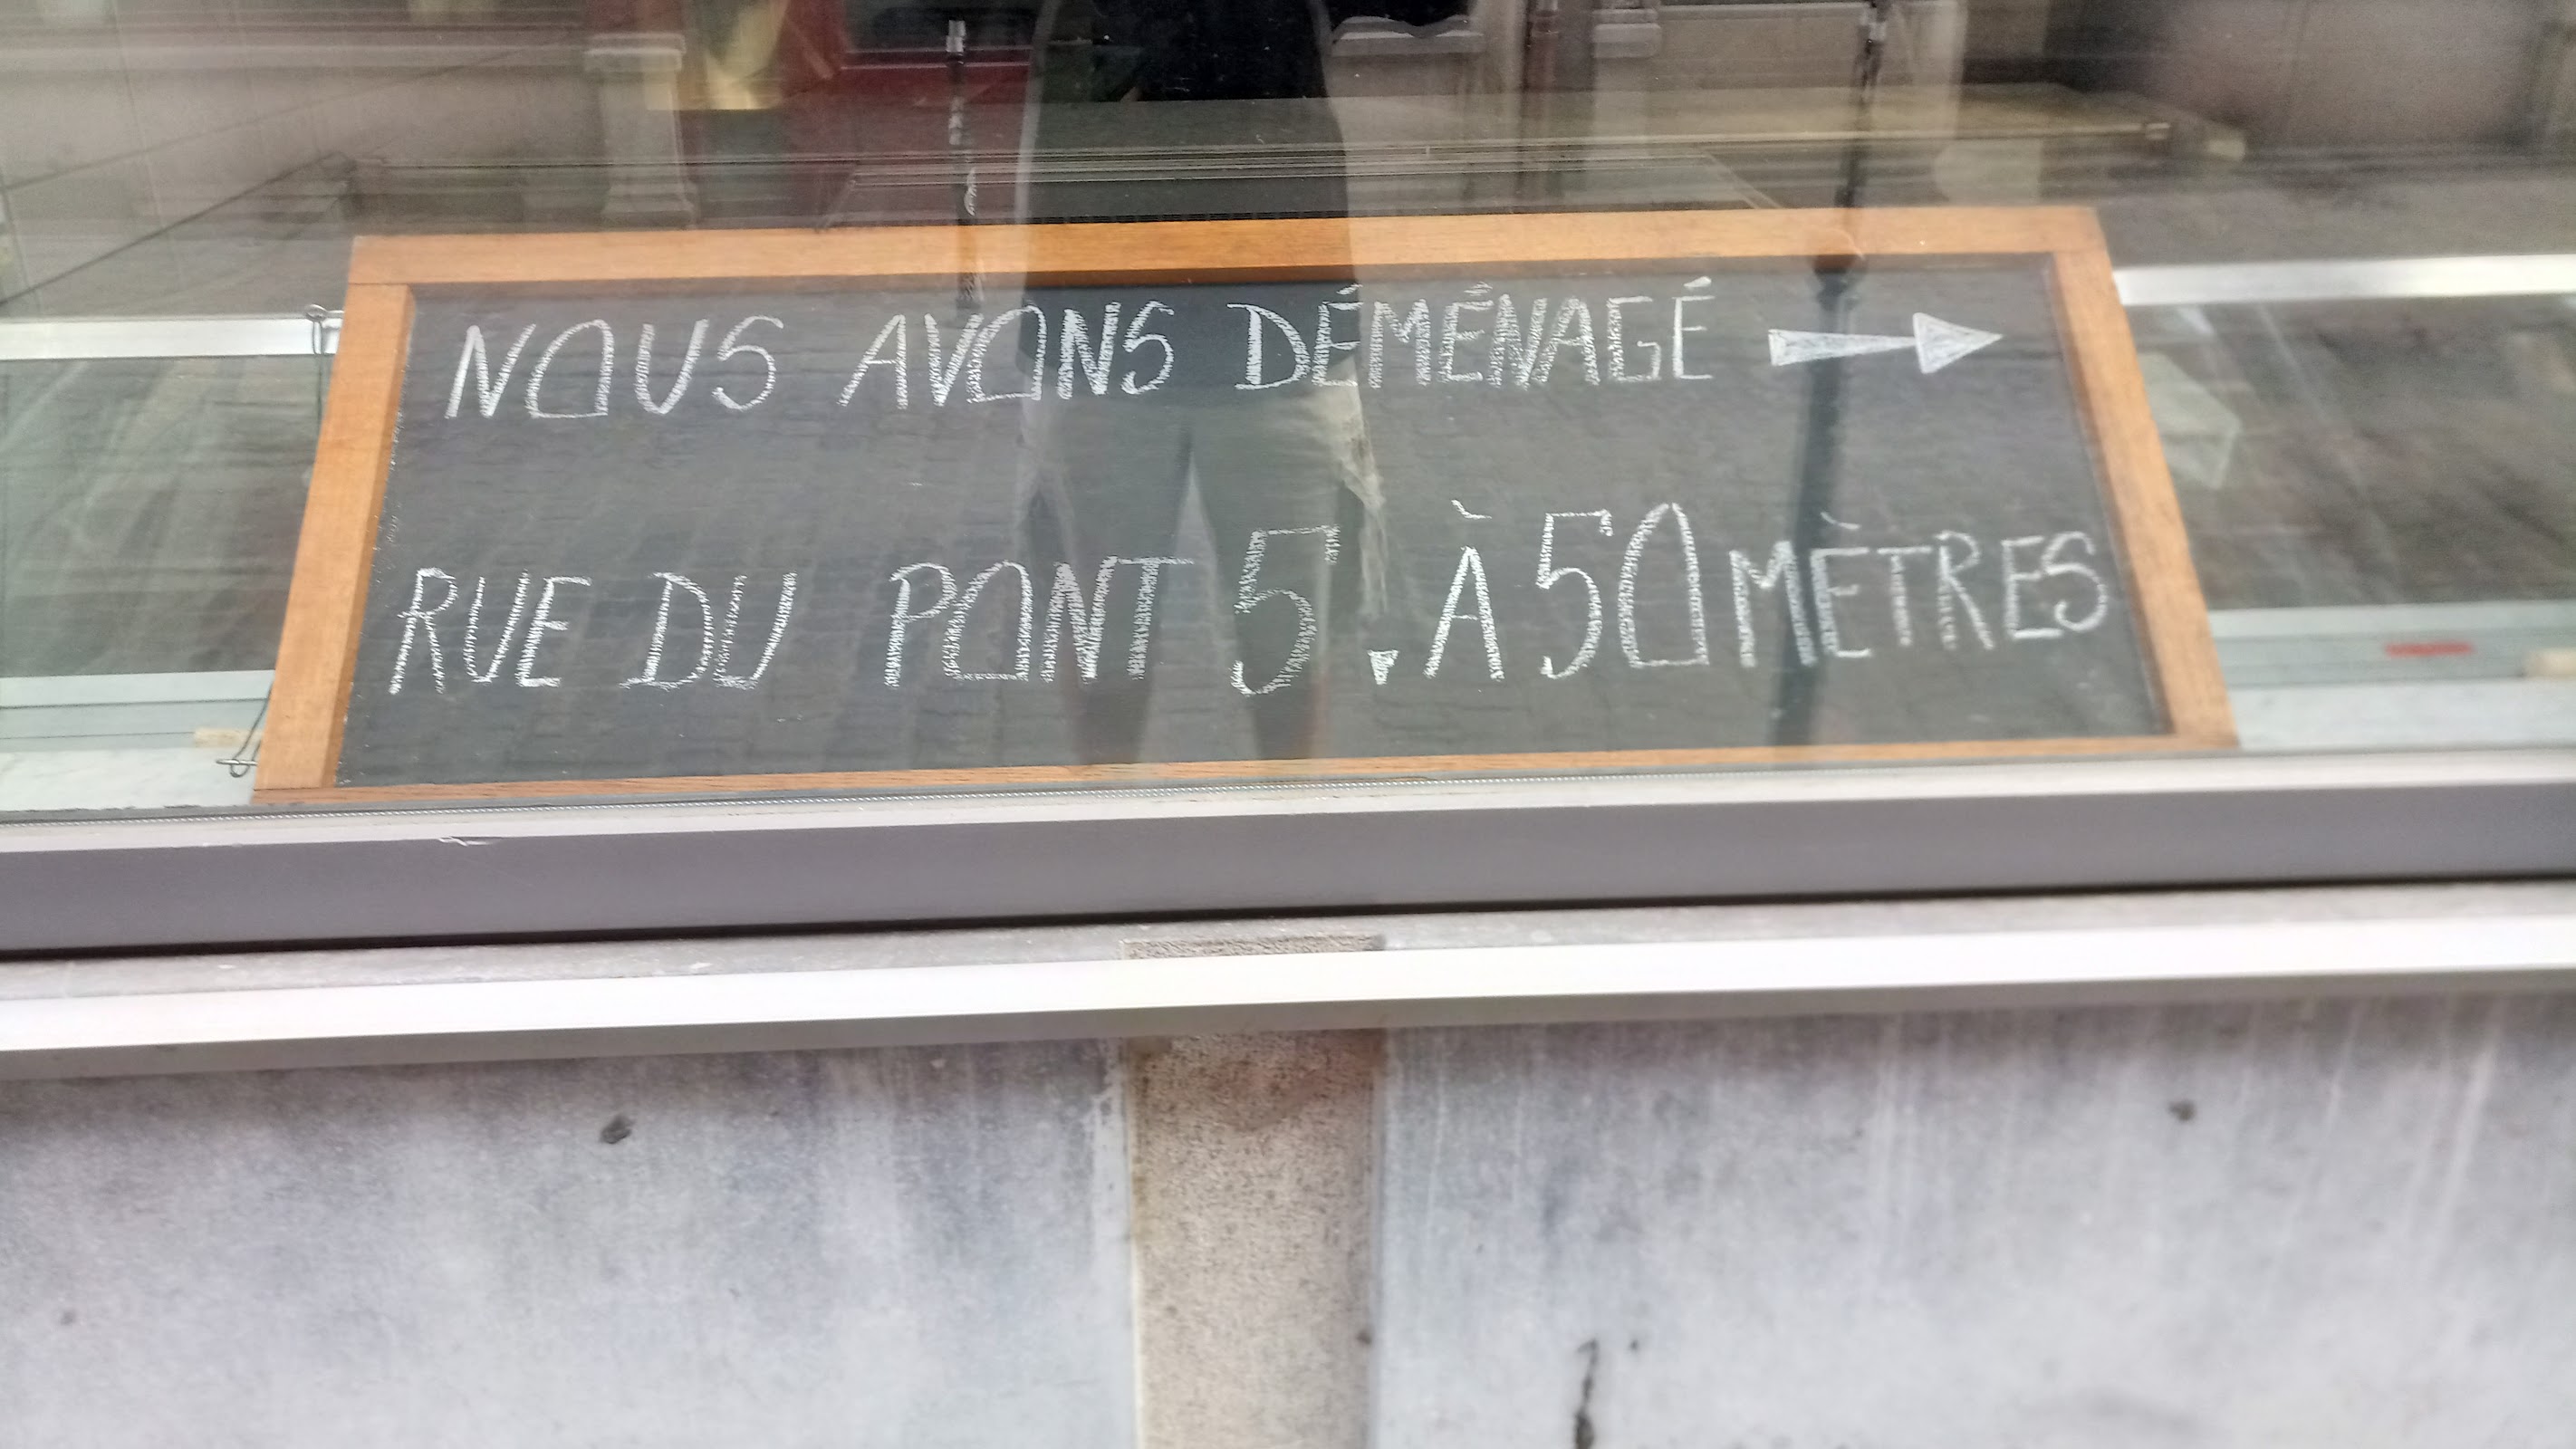 NOUS AVONS DÉMÉNAGÉ →
RUE DU PONT 5. À 50 MÈTRES